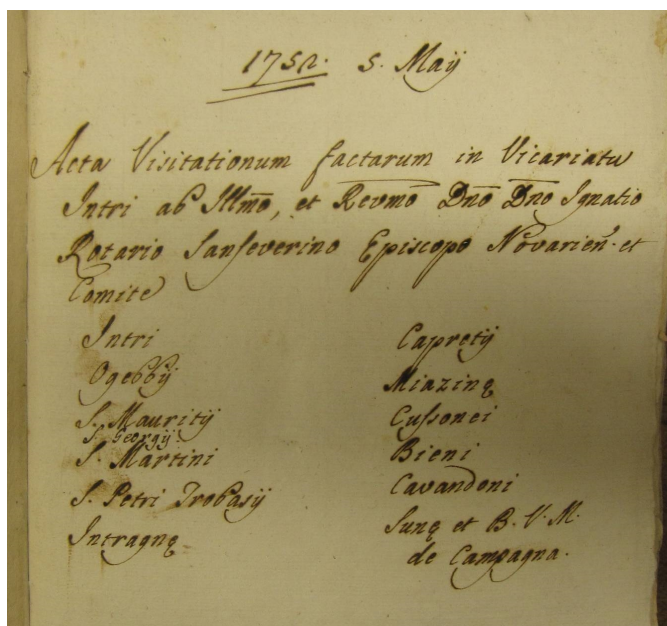 1752. 5. Maÿ
Acta Visitationum factarum in Vicariatu
Intri ab Illmō, et Revmō Dnō Dnō Ignatio
Rotario Sanseverino Episcopo Novarien̄. et
Comite
Intri
Ogebbÿ
S. Mauritÿ
S. Georgÿ
S. Martini
S. Petri Trobasÿ
Intragnę
Capretÿ
Miazinę
Cussonei
Bieni
Cavandoni
Sunę et B. V. M.
de Campagna.